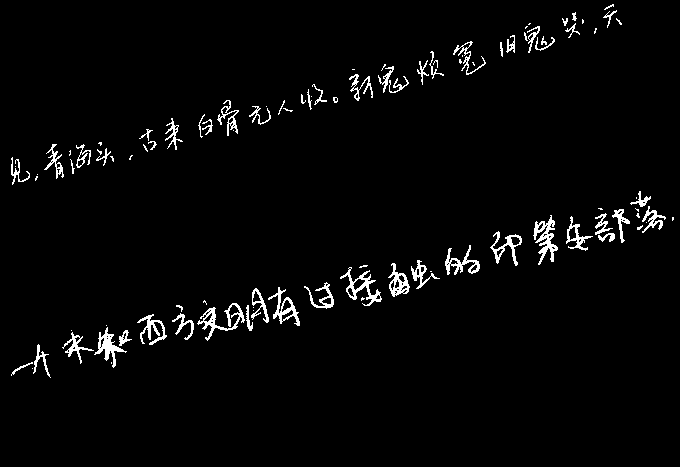 见,青海头,古来白骨无人收。新鬼烦冤旧鬼哭,天
个未和西方文明有过接触的印第安部落.